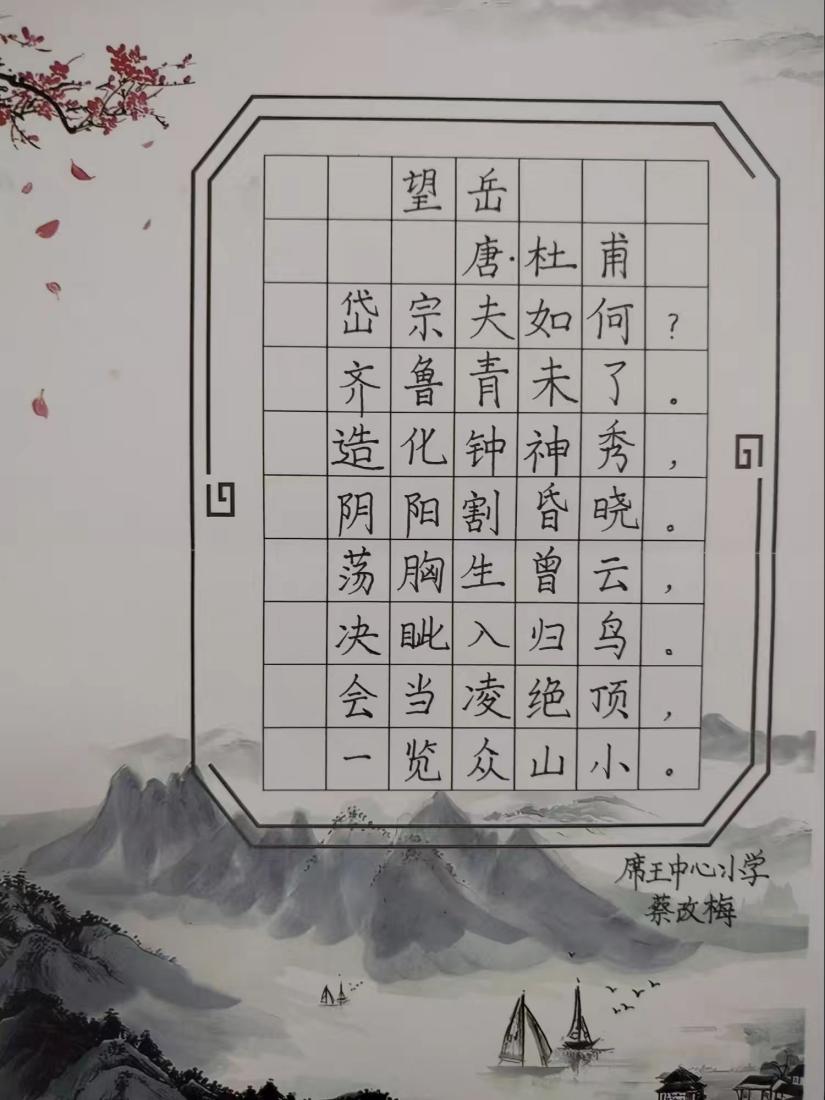 望岳
唐·杜甫
岱宗夫如何？
齐鲁青未了。
造化钟神秀，
阴阳割昏晓。
荡胸生曾云，
决眦入归鸟。
会当凌绝顶，
一览众山小。
席王中心小学
蔡改梅